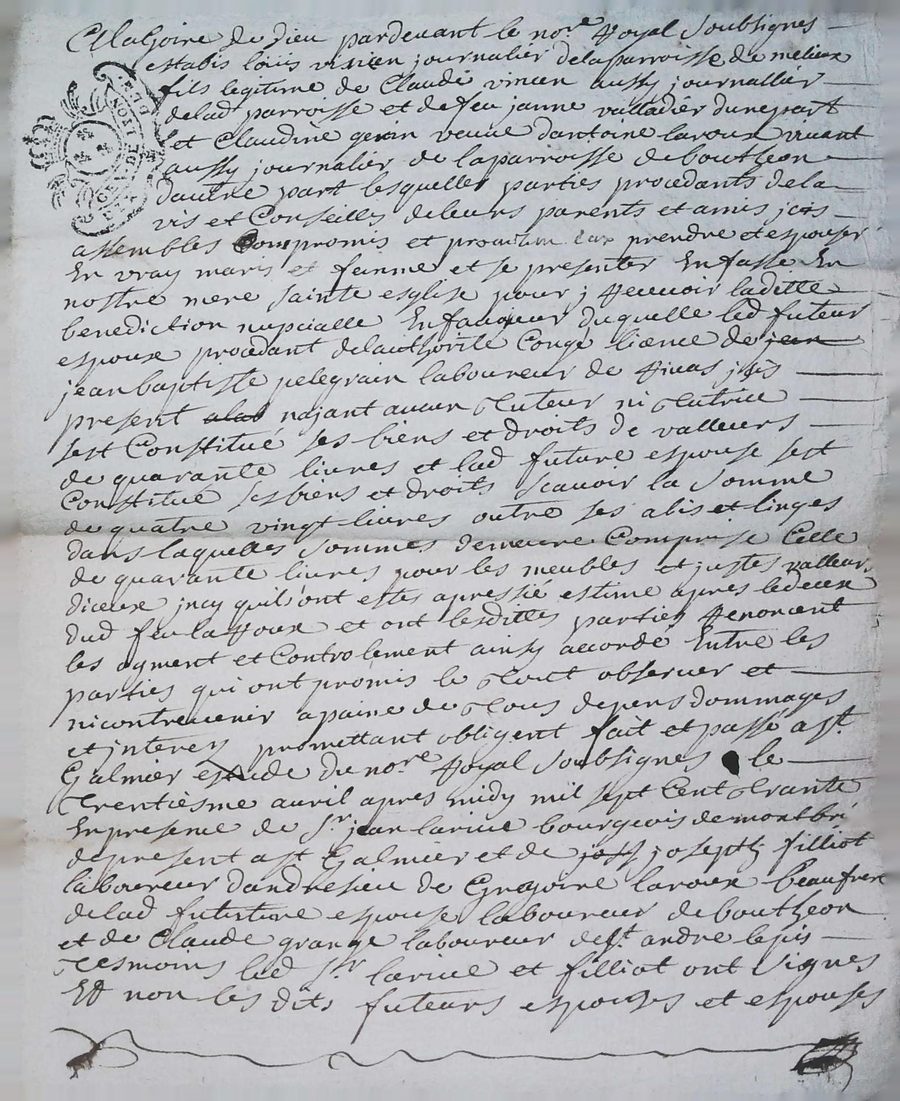 A la Gloire de Dieu pardevant le nore Royal Soubsignes
estabis louis vincen journalier delaparroisse de
fils legitime de Claude vincen aussy journallier
delad parroisse et defeu janne valladier dunepart
et Claudine genin veuve dantoine laroux vivant
aussy journalier de laparroisse deboutheon
dautre part lesquelles parties procedants dela
vis et Conseilles deleurs parents et amis jcis
assembles Compromis et prendre et espouser
En vray maris et famme et se presenter Enfasse En
nostre mere sainte esglise pour j Recevoir laditte
benediction nupcialle Enfaveur duquelle led futeur
espoux procedant delauthorite Conge lisence de jean
jean baptiste pelegrain laboureur de Rivas jcis
present najant aucun Tuteur ni Tutrice
sest Constitué ses biens et droits de valleurs
de quarante livres et lad future espouse sest
Constitue ses biens et droits scavoir la somme
de quatre vingt livres outre ses abis et linges
dans laquelles sommes demeure Comprise Celle
de quarante livres pour les meubles et justes valleurs
diceux jncy quils ont estes apressié estime apres ledeces
dud feu laRoux et ont lesdittes parties Renoncent
les ogment et Controlement ainsy accorde Entre les
parties qui ont promis le Tout observer et
nicontrevenir apaine de Tous depens dommages
et jnteres promettant obligent fait et passé a st
Galmier estude du nore Royal Soubsignes le
Trentiesme avril apres midy mil sept Cent Trante
Enpresence de sr jean larive bourgeois demontbré
depresent a st Galmier et de josp joseph filliot
laboureur dandresieu de Gregoire laroux beaufrere
delad futeture espouse laboureur de boutheon
et de Claude grange laboureur de st andre lepis
Tesmoins led sr larive et filliot ont signes
Et non les dits futeurs espouses et espouses